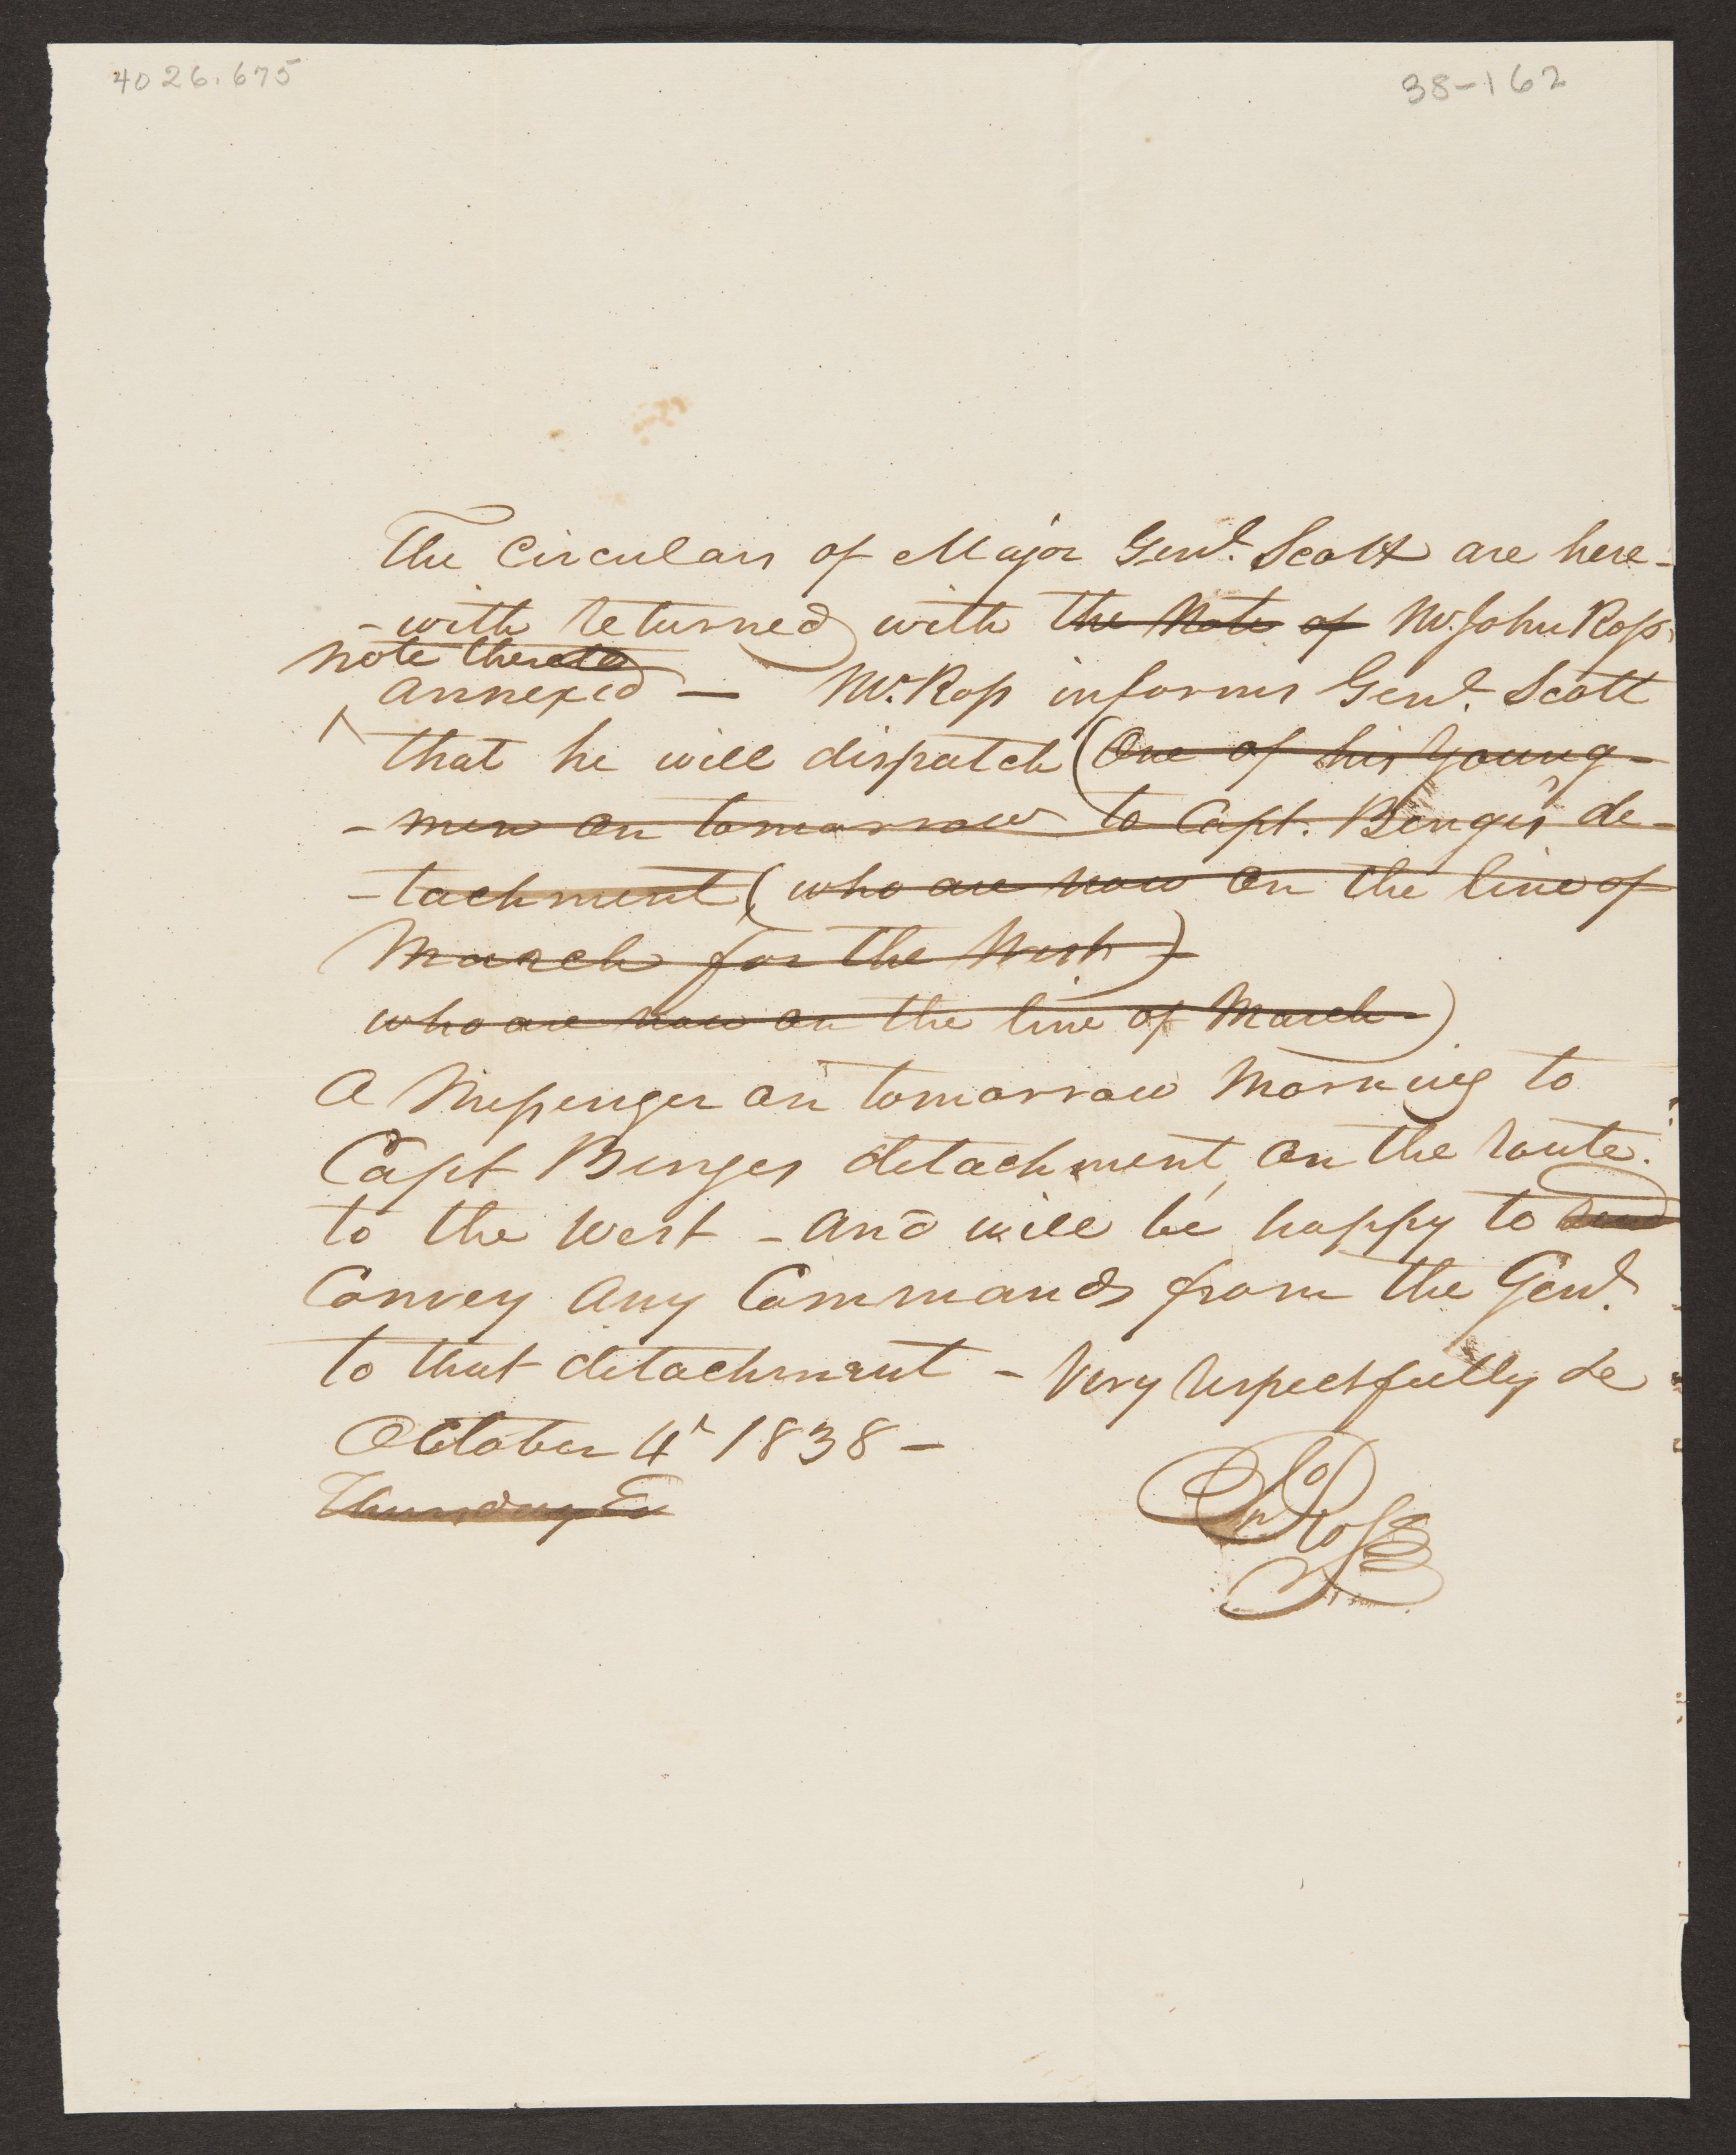 4026.675
38-162
The Circulars of Major Genl. Scott are here-
-with returned with the Note of Mr. John Ross
note thereto
annexed — Mr. Ross informs Genl. Scott
that he will dispatch (One of his young-
-men on tomorrow to Capt. Benge's de-
-tachment (who are now on the line of
March for the West)
who are now on the line of March-)
A Messenger on tomorrow Morning to
Capt Benges detachment, on the route
to the West - and will be happy to send
Convey Any Commands from the Genl.
to that detachment - Very respectfully &c
October 4th 1838 -
Thursday Ev
Jno Ross